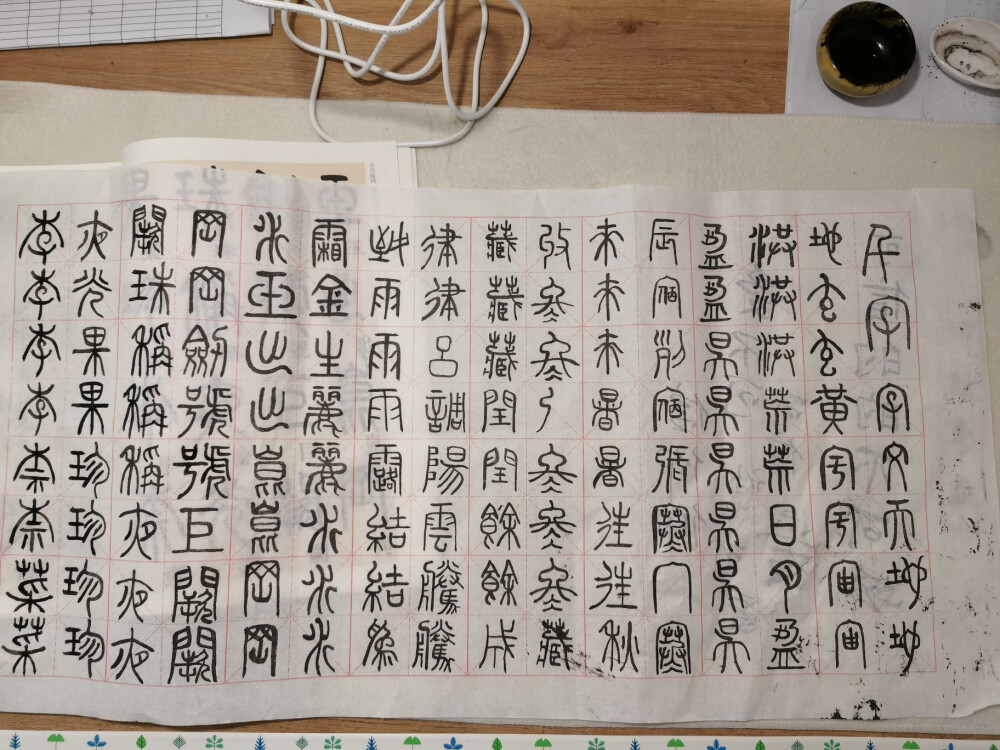 千字字文天地地
地玄玄黃宇宇宙宙
洪洪洪荒荒日月盈
盈盈昃昃昃昃昃昃
辰宿列宿張寒寒
來來來暑暑往往秋
收冬冬冬冬冬藏
藏藏藏閏閏餘餘成
律律呂調陽雲騰騰
致雨雨雨露結結為
霜金生麗麗水水水
水玉出出崑崑岡岡
岡岡劍號號巨闕闕
闕珠稱稱稱夜夜夜
夜光果果珍珍珍珍
李李李李柰柰菜菜